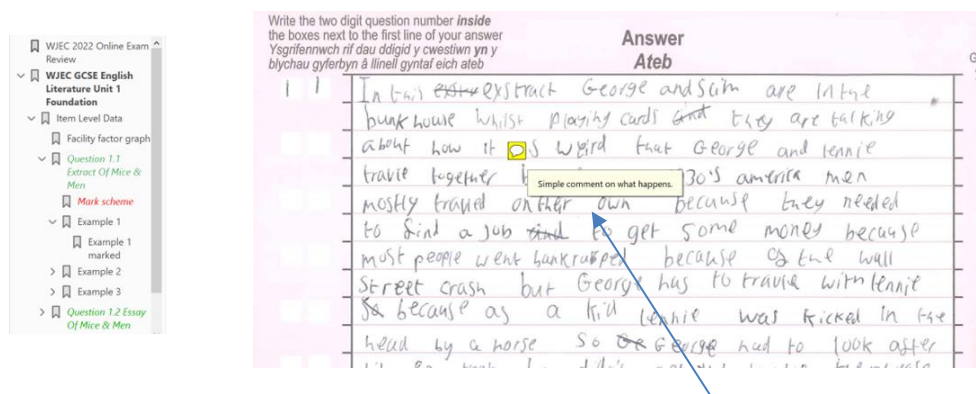 WJEC 2022 Online Exam
Review
WJEC GCSE English
Literature Unit 1
Foundation
Item Level Data
Facility factor graph
Question 1.1
Extract Of Mice &
Men
Mark scheme
Example 1
Example 1
marked
Example 2
Example 3
Question 1.2 Essay
Of Mice & Men
Write the two digit question number inside
the boxes next to the first line of your answer
Ysgrifennwch rif dau ddigid y cwestiwn yn y
blychau gyferbyn â llinell gyntaf eich ateb
Answer
Ateb
1 1 In this exstract George and Slim are in the
bunk house whilst playing cards and they are talking
about how it s weird that George and lennie
travle together 30's america men
Simple comment on what happens.
mostly travled on ther own because they needed
to find a job to get some money because
most people went bankrupped because of the wall
Street crash but George has to travle with lennie
because as a kid lennie was kicked in the
head by a horse so George had to look after